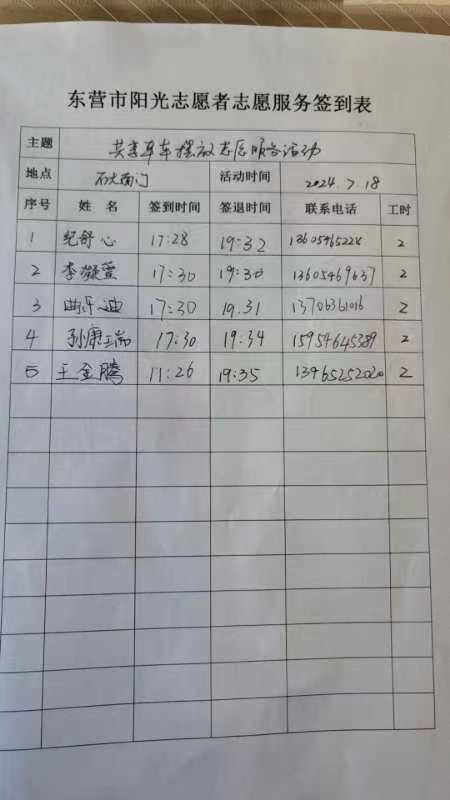 东营市阳光志愿者志愿服务签到表
主题 共享单车摆放志愿服务活动
地点 石大南门 活动时间 2024.7.18
序号 姓名 签到时间 签退时间 联系电话 工时
1 纪舒心 17:28 19:32 2
2 李凝萱 17:30 19:30 13605469637 2
3 17:30 19:31 13706361016 2
4 孙康瑞 17:30 19:34 15954645389 2
5 王金腾 17:26 19:35 13465252020 2